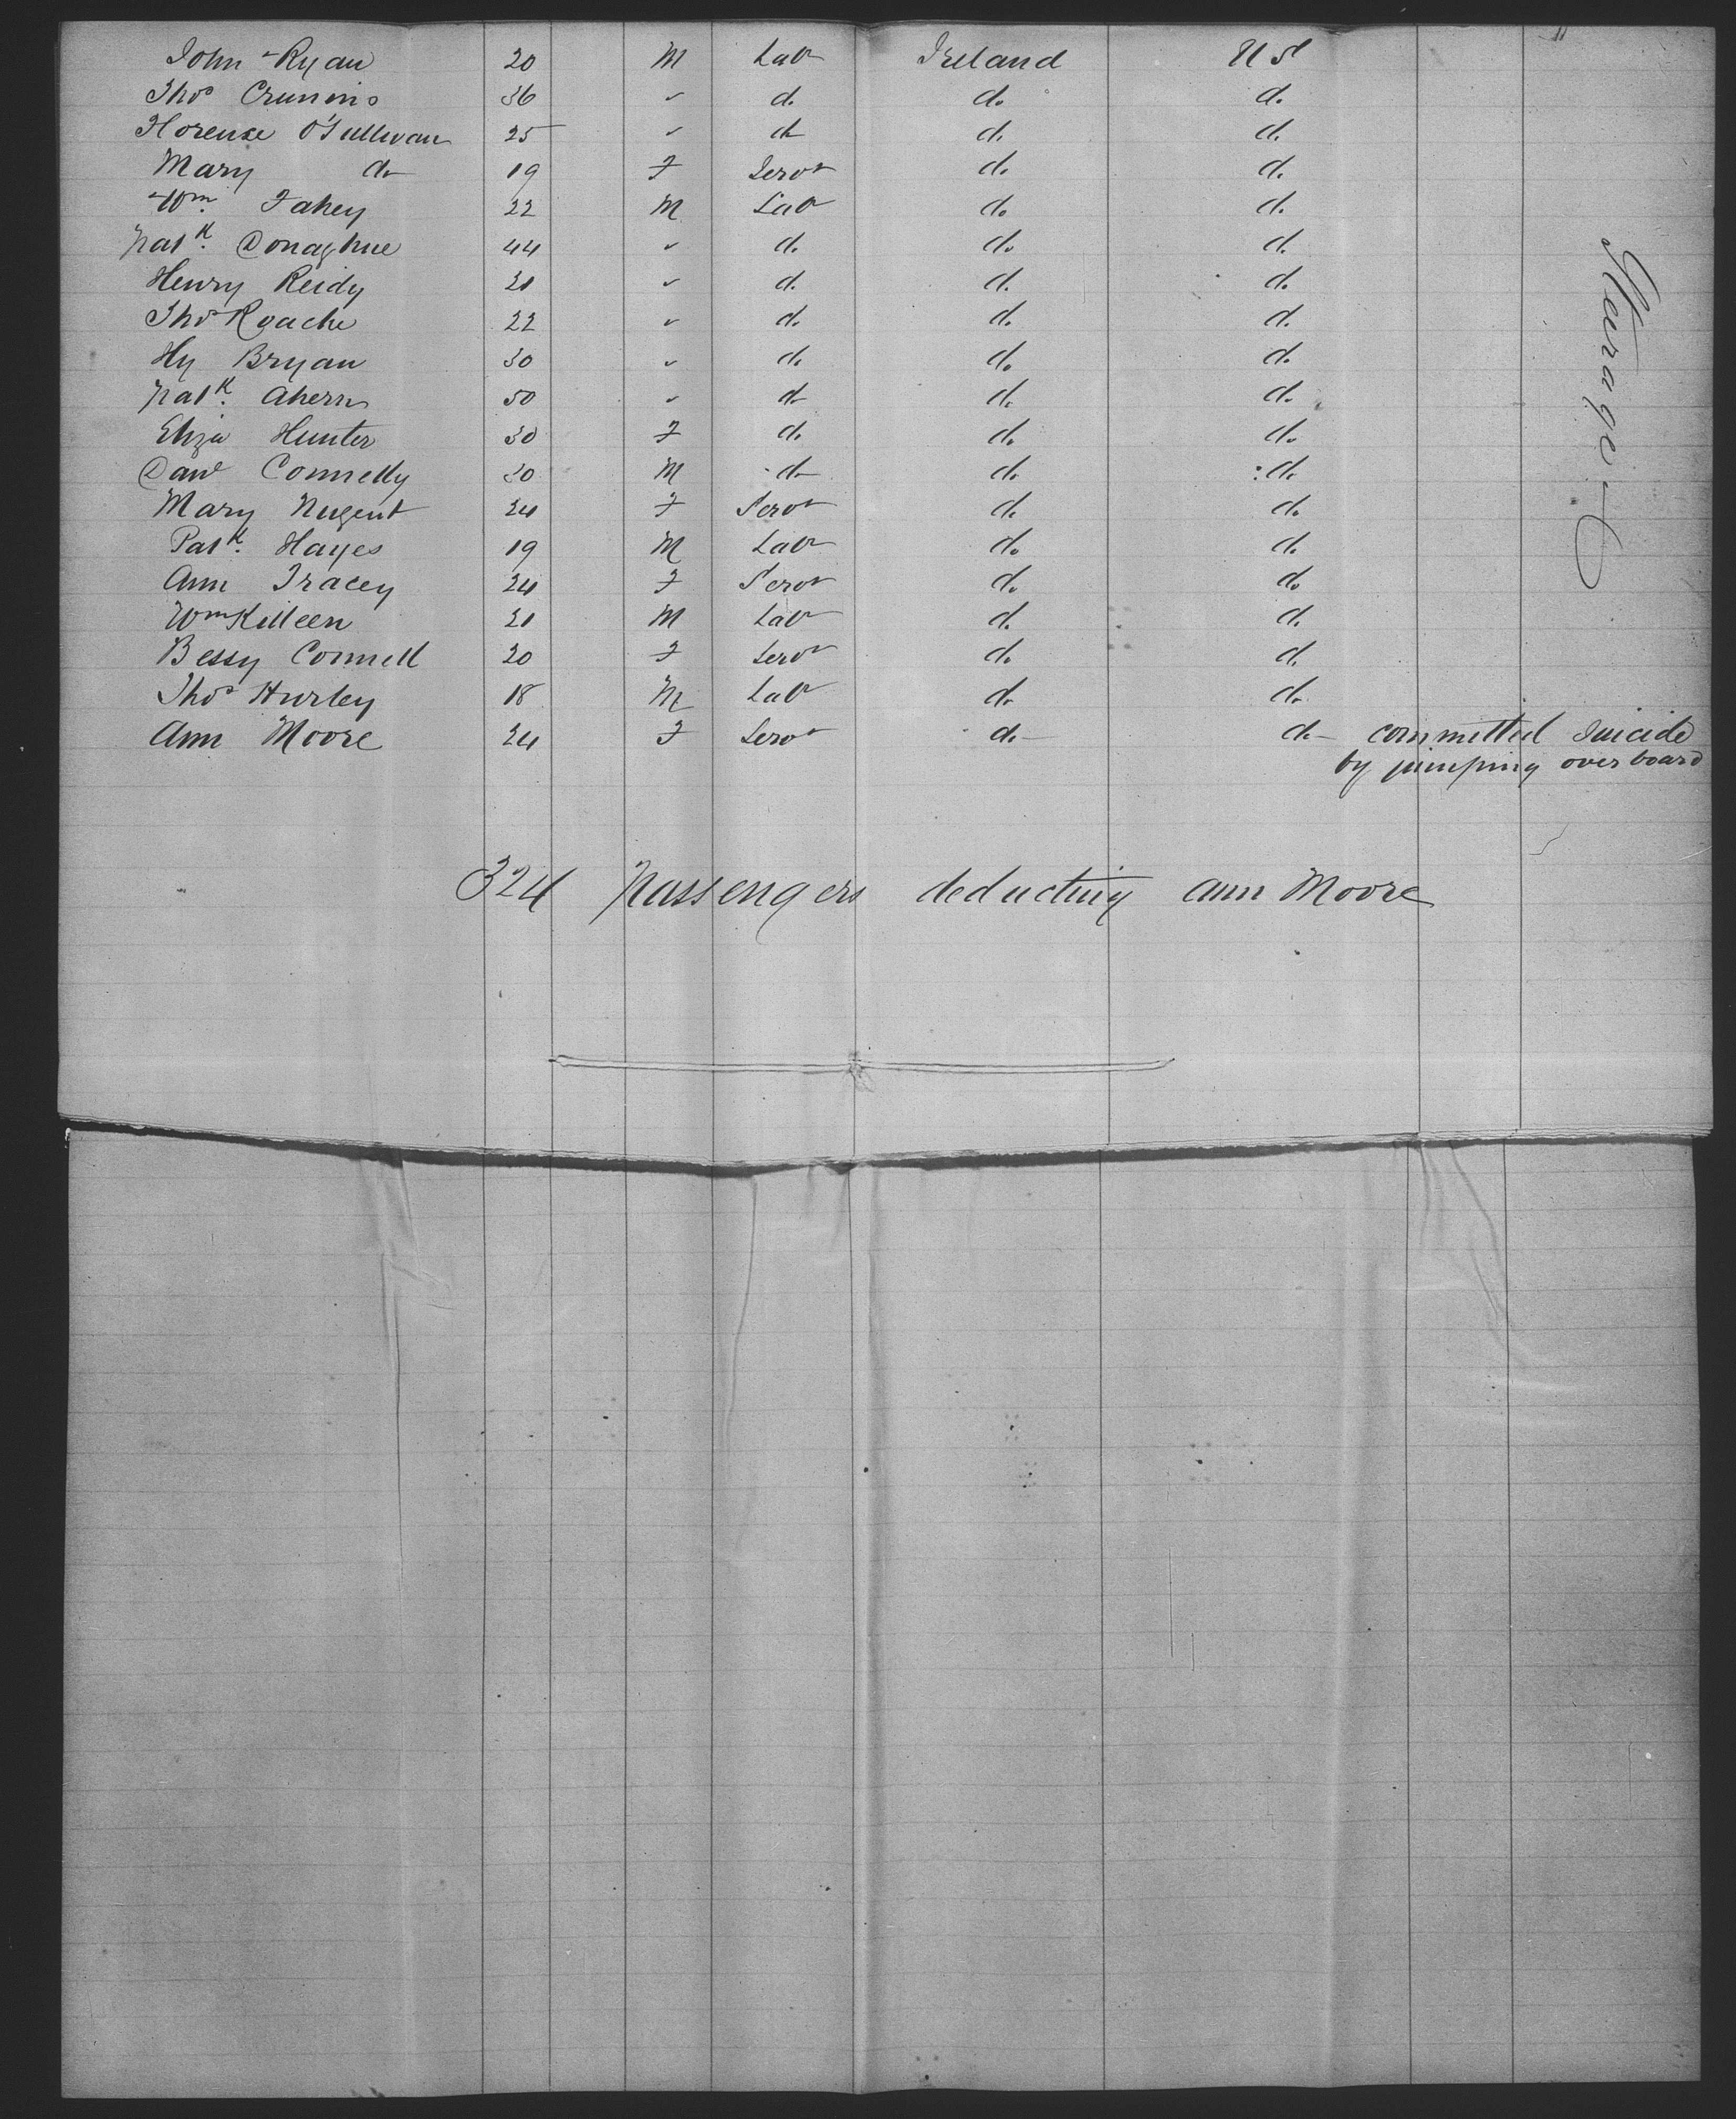 John Ryan 20 M Labr Ireland US
Thos Cronins 36 " do do do
Florence O'Sullivan 25 " do do do
Mary do 19 F Servt do do
Wm Fahey 22 M Labr do do
Patk. Donaghue 44 " do do do
Henry Reidy 21 " do do do
Thos Roache 22 " do do do
Hy Bryan 30 " do do do
Patk. Ahern 50 " do do do
Eliza Hunter 30 F do do do
Danl Connelly 20 M do do do
Mary Nugent 24 F Servt do do
Patk. Hayes 19 M Labr do do
Ann Tracey 24 F Servt do do
Wm Killeen 21 M Labr do do
Bessy Connell 20 F Servt do do
Thos Hurley 18 M Labr do do
Ann Moore 24 F Servt do do committed Suicide
by jumping overboard
Steerage
324 Passengers deducting Ann Moore